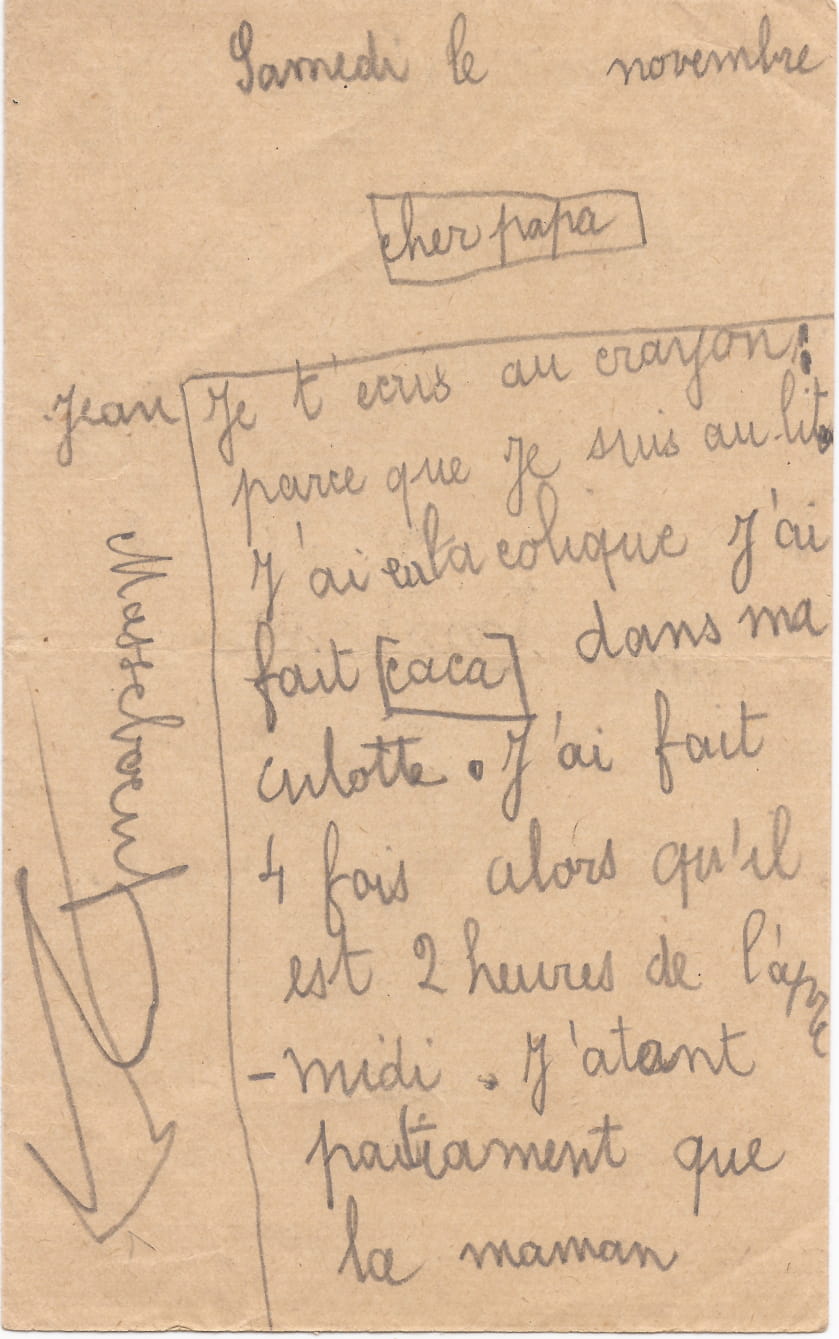 Samedi le novembre
cher papa
Jean
Je t'ecris au crayon:
parce que Je suis au lit.
J'ai la colique J'ai
fait caca dans ma
culotte. J'ai fait
4 fois alors qu'il
est 2 heures de l'apre
-midi. J'atant
patiament que
la maman
Masseboeuf